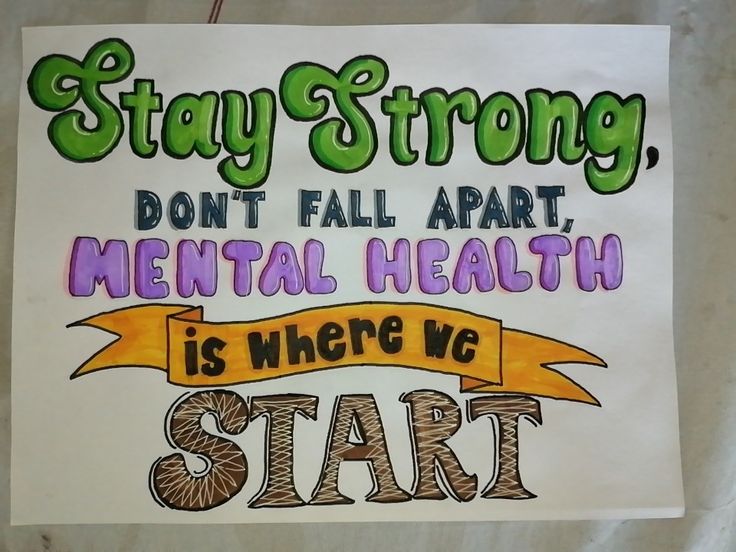 Stay Strong,
DON'T FALL APART,
MENTAL HEALTH
is where we
START